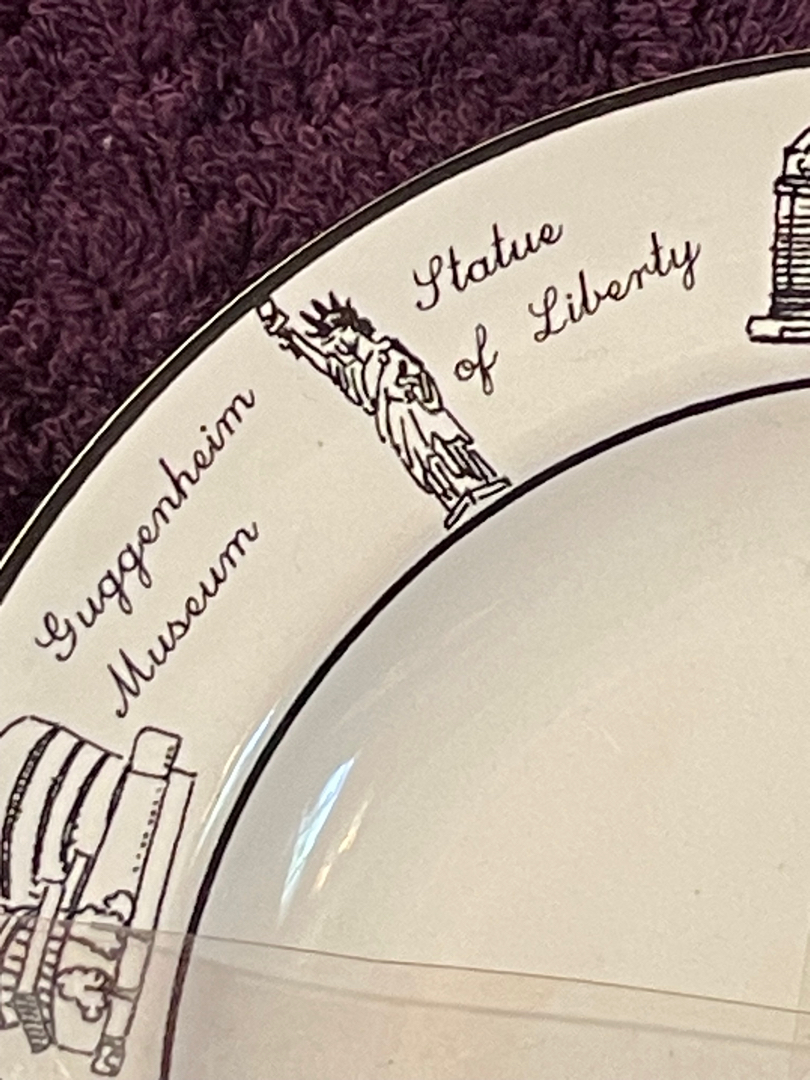 Statue
of Liberty
Guggenheim
Museum